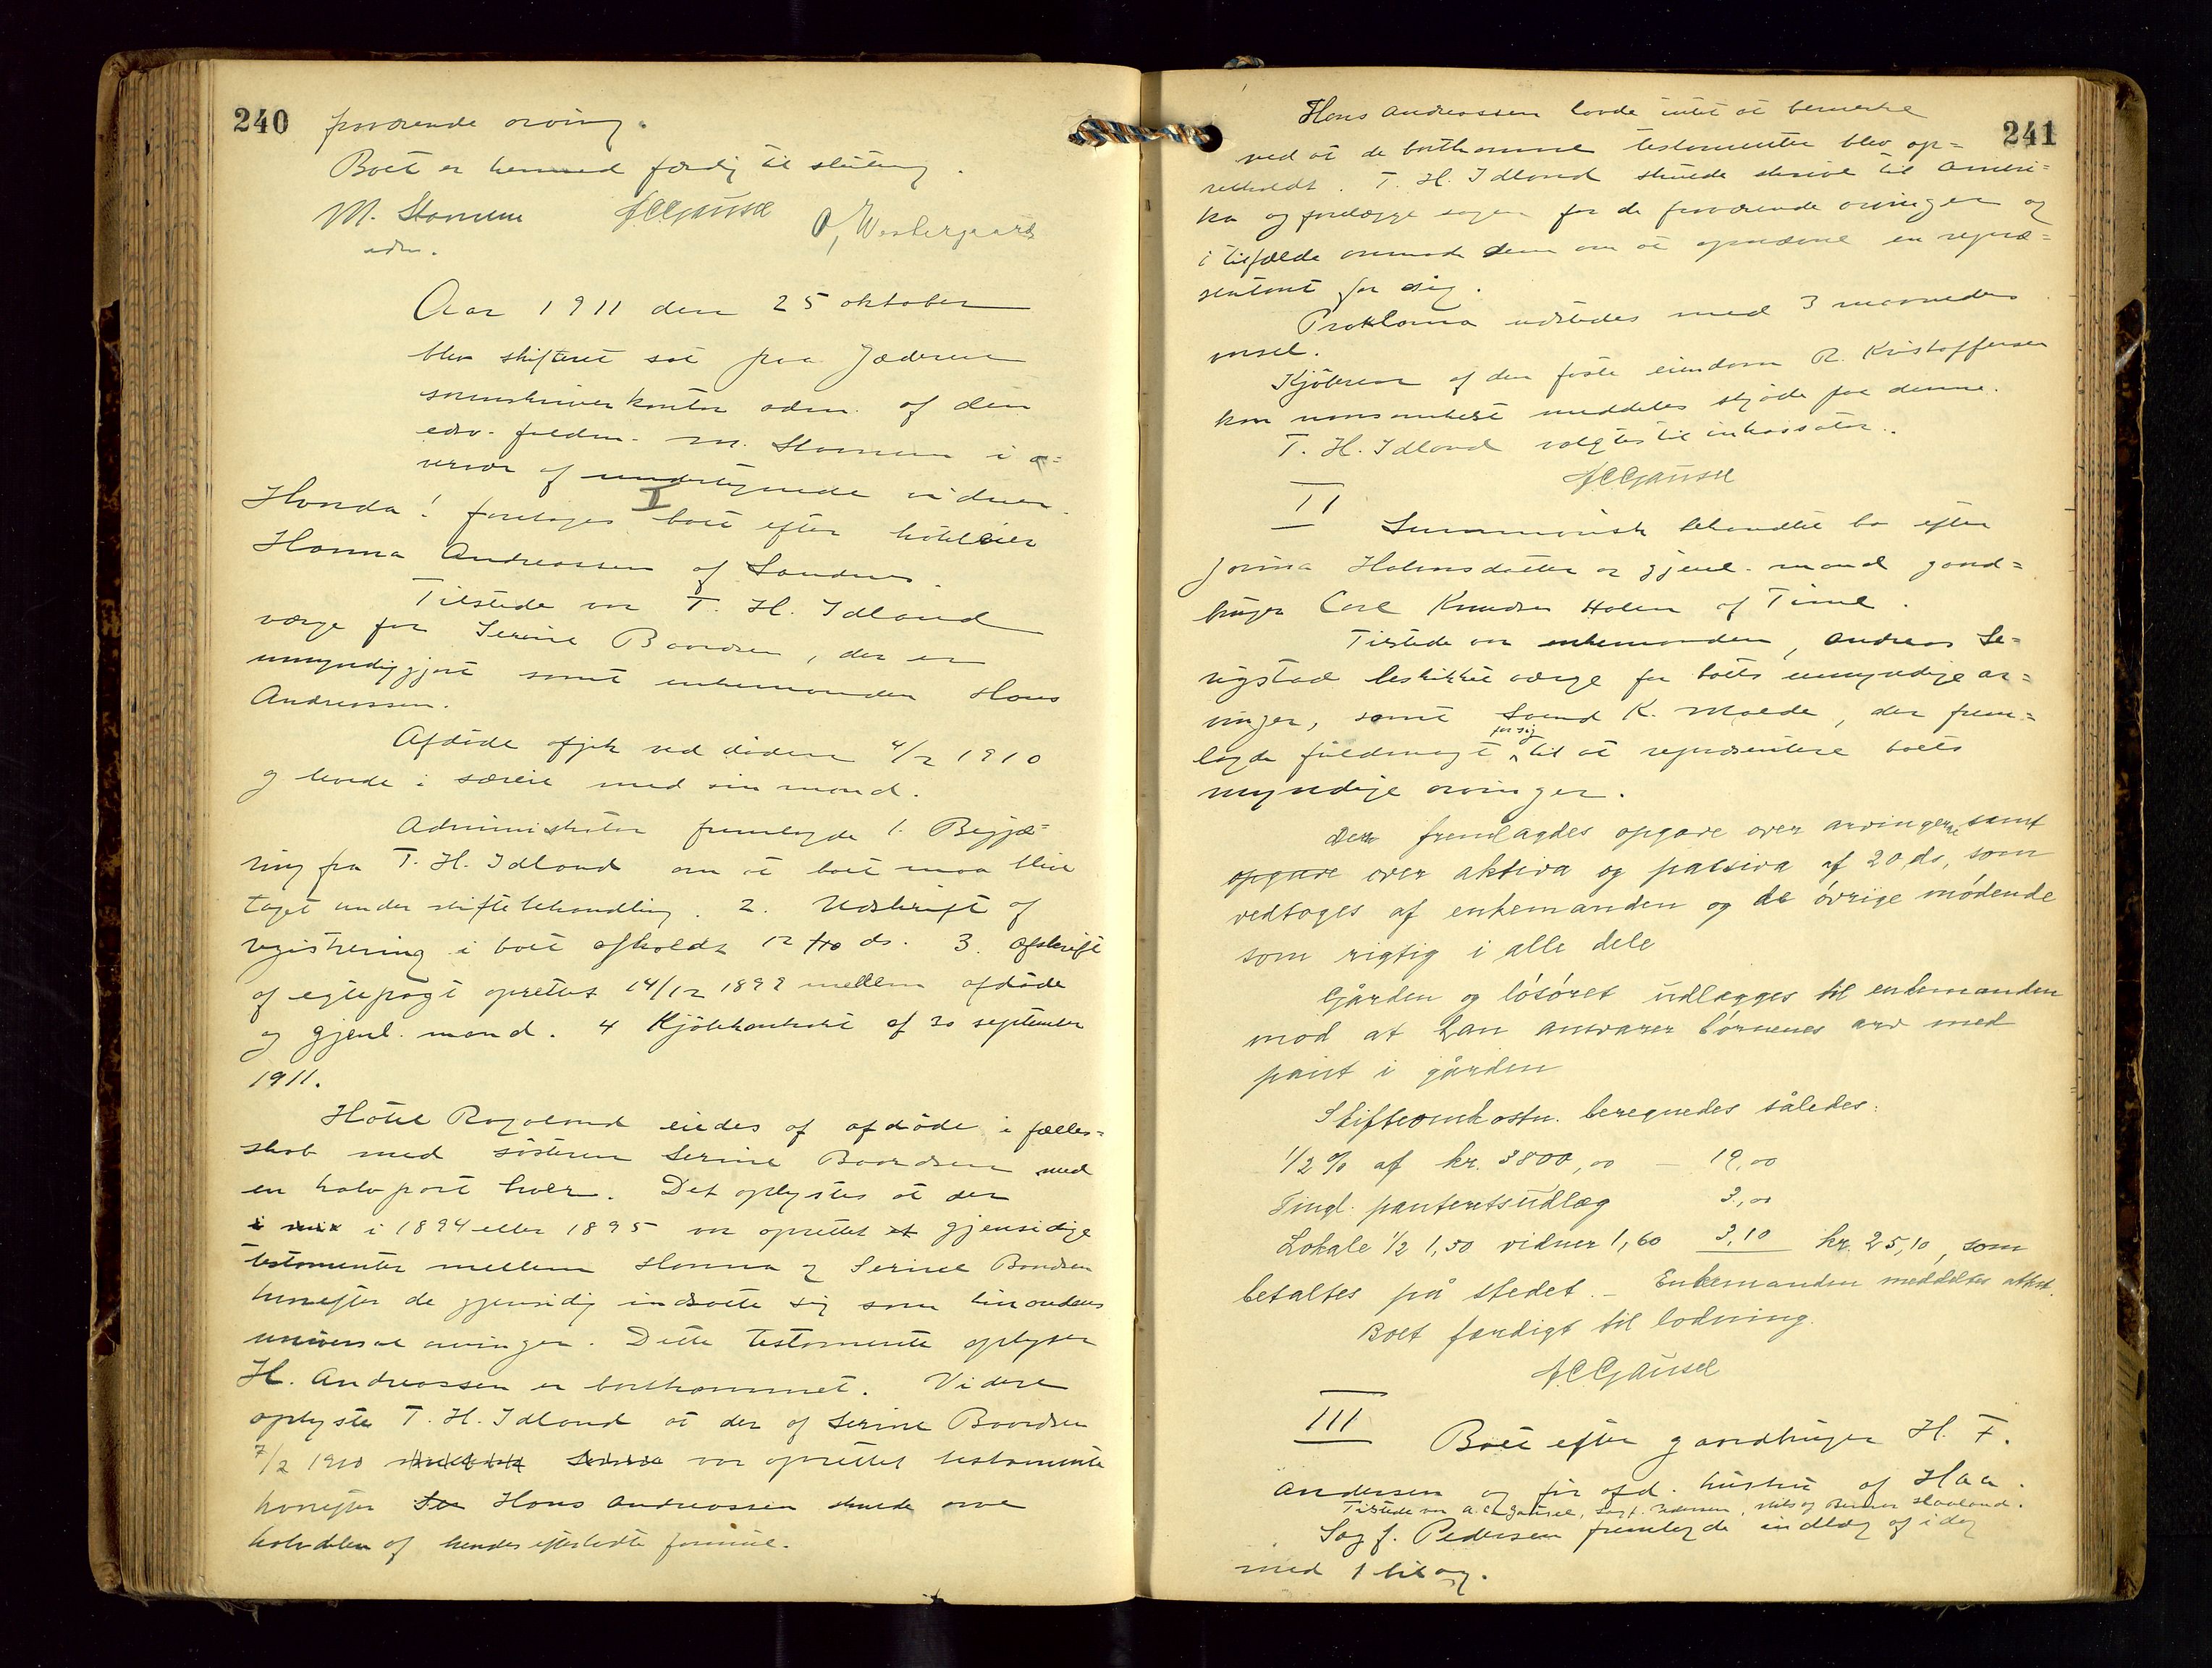 240
fraværende arving.
Boet er hermed færdig til slutning.
M. Stamnes ACGausel O, Westergaard
edsv.
Aar 1911 den 25 oktober
blev skifteret sat paa Jæderens
sorenskriverkontor adm. af den
edsv. fuldm. M. Stamnes i o=
vervær af undertegnede vidner.
Hvorda! foretoges I boet efter hoteleier
Hanna Andreassen af Sandnes.
Tilstede var T. H. Idland
værge for Serine Baardsen, der er
umyndiggjort samt enkemanden Hans
Andreassen.
Afdøde afgik ved døden 4/2 1910
og levede i særeie med sin mand.
Administrator fremlagde 1. Begjæ=
ring fra T. H. Idland om at boet maa blive
taget under skiftebehandling. 2. Udskrift af
registrering i boet afholdt 12 ds. 3. Afskrift
af egtepagt oprettet 14/12 1892 mellem afdøde
og gjenl. mand. 4 Kjøbekontrakt af 30 september
1911.
Hotel Rogaland eiedes af afdøde i fælles=
skab med søsteren Serine Baardsen med
en halvpart hver. Det oplystes at der
i 1894 eller 1895 var oprettet et gjensidige
testamenter mellem Hanna og Serine Baardsen
hvorefter de gjensidig indsatte sig som hinandens
universal arvinger. Dette testamente oplyser
H. Andreassen er bortkommet. Videre
oplyste T. H. Idland at der af Serine Baardsen
7/2 1910 var oprettet testamente
hvorefter Hans Andreassen skulde arve
halvdelen af hendes efterladte formue.
241
Hans Andreassen havde intet at bemerke
ved at de bortkomne testamenter blev op=
retholdt. T. H. Idland skulde skrive til Ameri=
ka og forelægge sagen for de fraværende arvinger og
i tilfælde anmode dem om at opnævne en repræ=
sentant for sig.
Proklama udstedes med 3 maaneders
varsel.
Kjøberen af den faste eiendom R. Kristoffersen
kan uansamlest meddeles skjøde paa denne.
T. H. Idland valgtes til inkassator.
ACGausel
II Summarisk behandlet bo efter
Jorina Halvorsdatter og gjenl. mand gaard=
bruger Carl Knudsen Holen af Time.
Tilstede var enkemanden, Andreas Se=
rigstad beskikket værge for boets umyndige ar=
vinger, samt Svend K. Malde, der frem=
lagde fuldmagt for sig til at repræsentere boets
myndige arvinger.
Der fremlagdes opgave over arvingerne samt
opgave over aktiva og passiva af 20 ds, som
vedtoges af enkemanden og de øvrige mødende
som rigtig i alle dele
Gården og løsøret udlægges til enkemanden
mod at han ansvarer børnenes arv med
pant i gården
Skifteomkostn. beregnedes således:
1/2 % af kr. 3800,00 – 19,00
Tingl. panteretsudlæg 3,00
Lokale 1/2 1,50 vidner 1,60 3,10 kr. 25,10, som
betaltes på stedet. – Enkemanden meddeltes attest.
Boet færdigt til lodning.
ACGausel
III Boet efter gaardbruger H. F.
Andersen og før afd. hustru af Haa.
Tilstede var A. C. Gausel, Sagf. Pedersen, Nils og Berner Haaland.
Sagf. Pedersen fremlagde indlæg af idag
med 1 bilag.